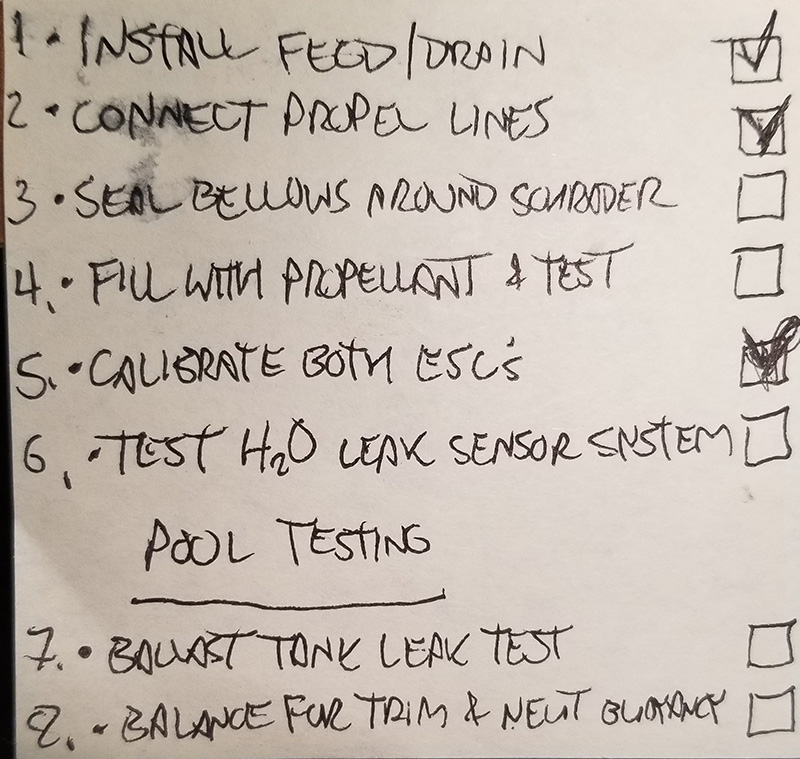 1. INSTALL FEED/DRAIN
2 • CONNECT PROPEL LINES
3 • SEAL BELLOWS AROUND SCHRADER
4. • FILL WITH PROPELLANT & TEST
5. • CALIBRATE BOTH ESC's
6. • TEST H₂O LEAK SENSOR SYSTEM
POOL TESTING
7. • BALLAST TANK LEAK TEST
8. • BALANCE FOR TRIM & NEUT BUOYANCY